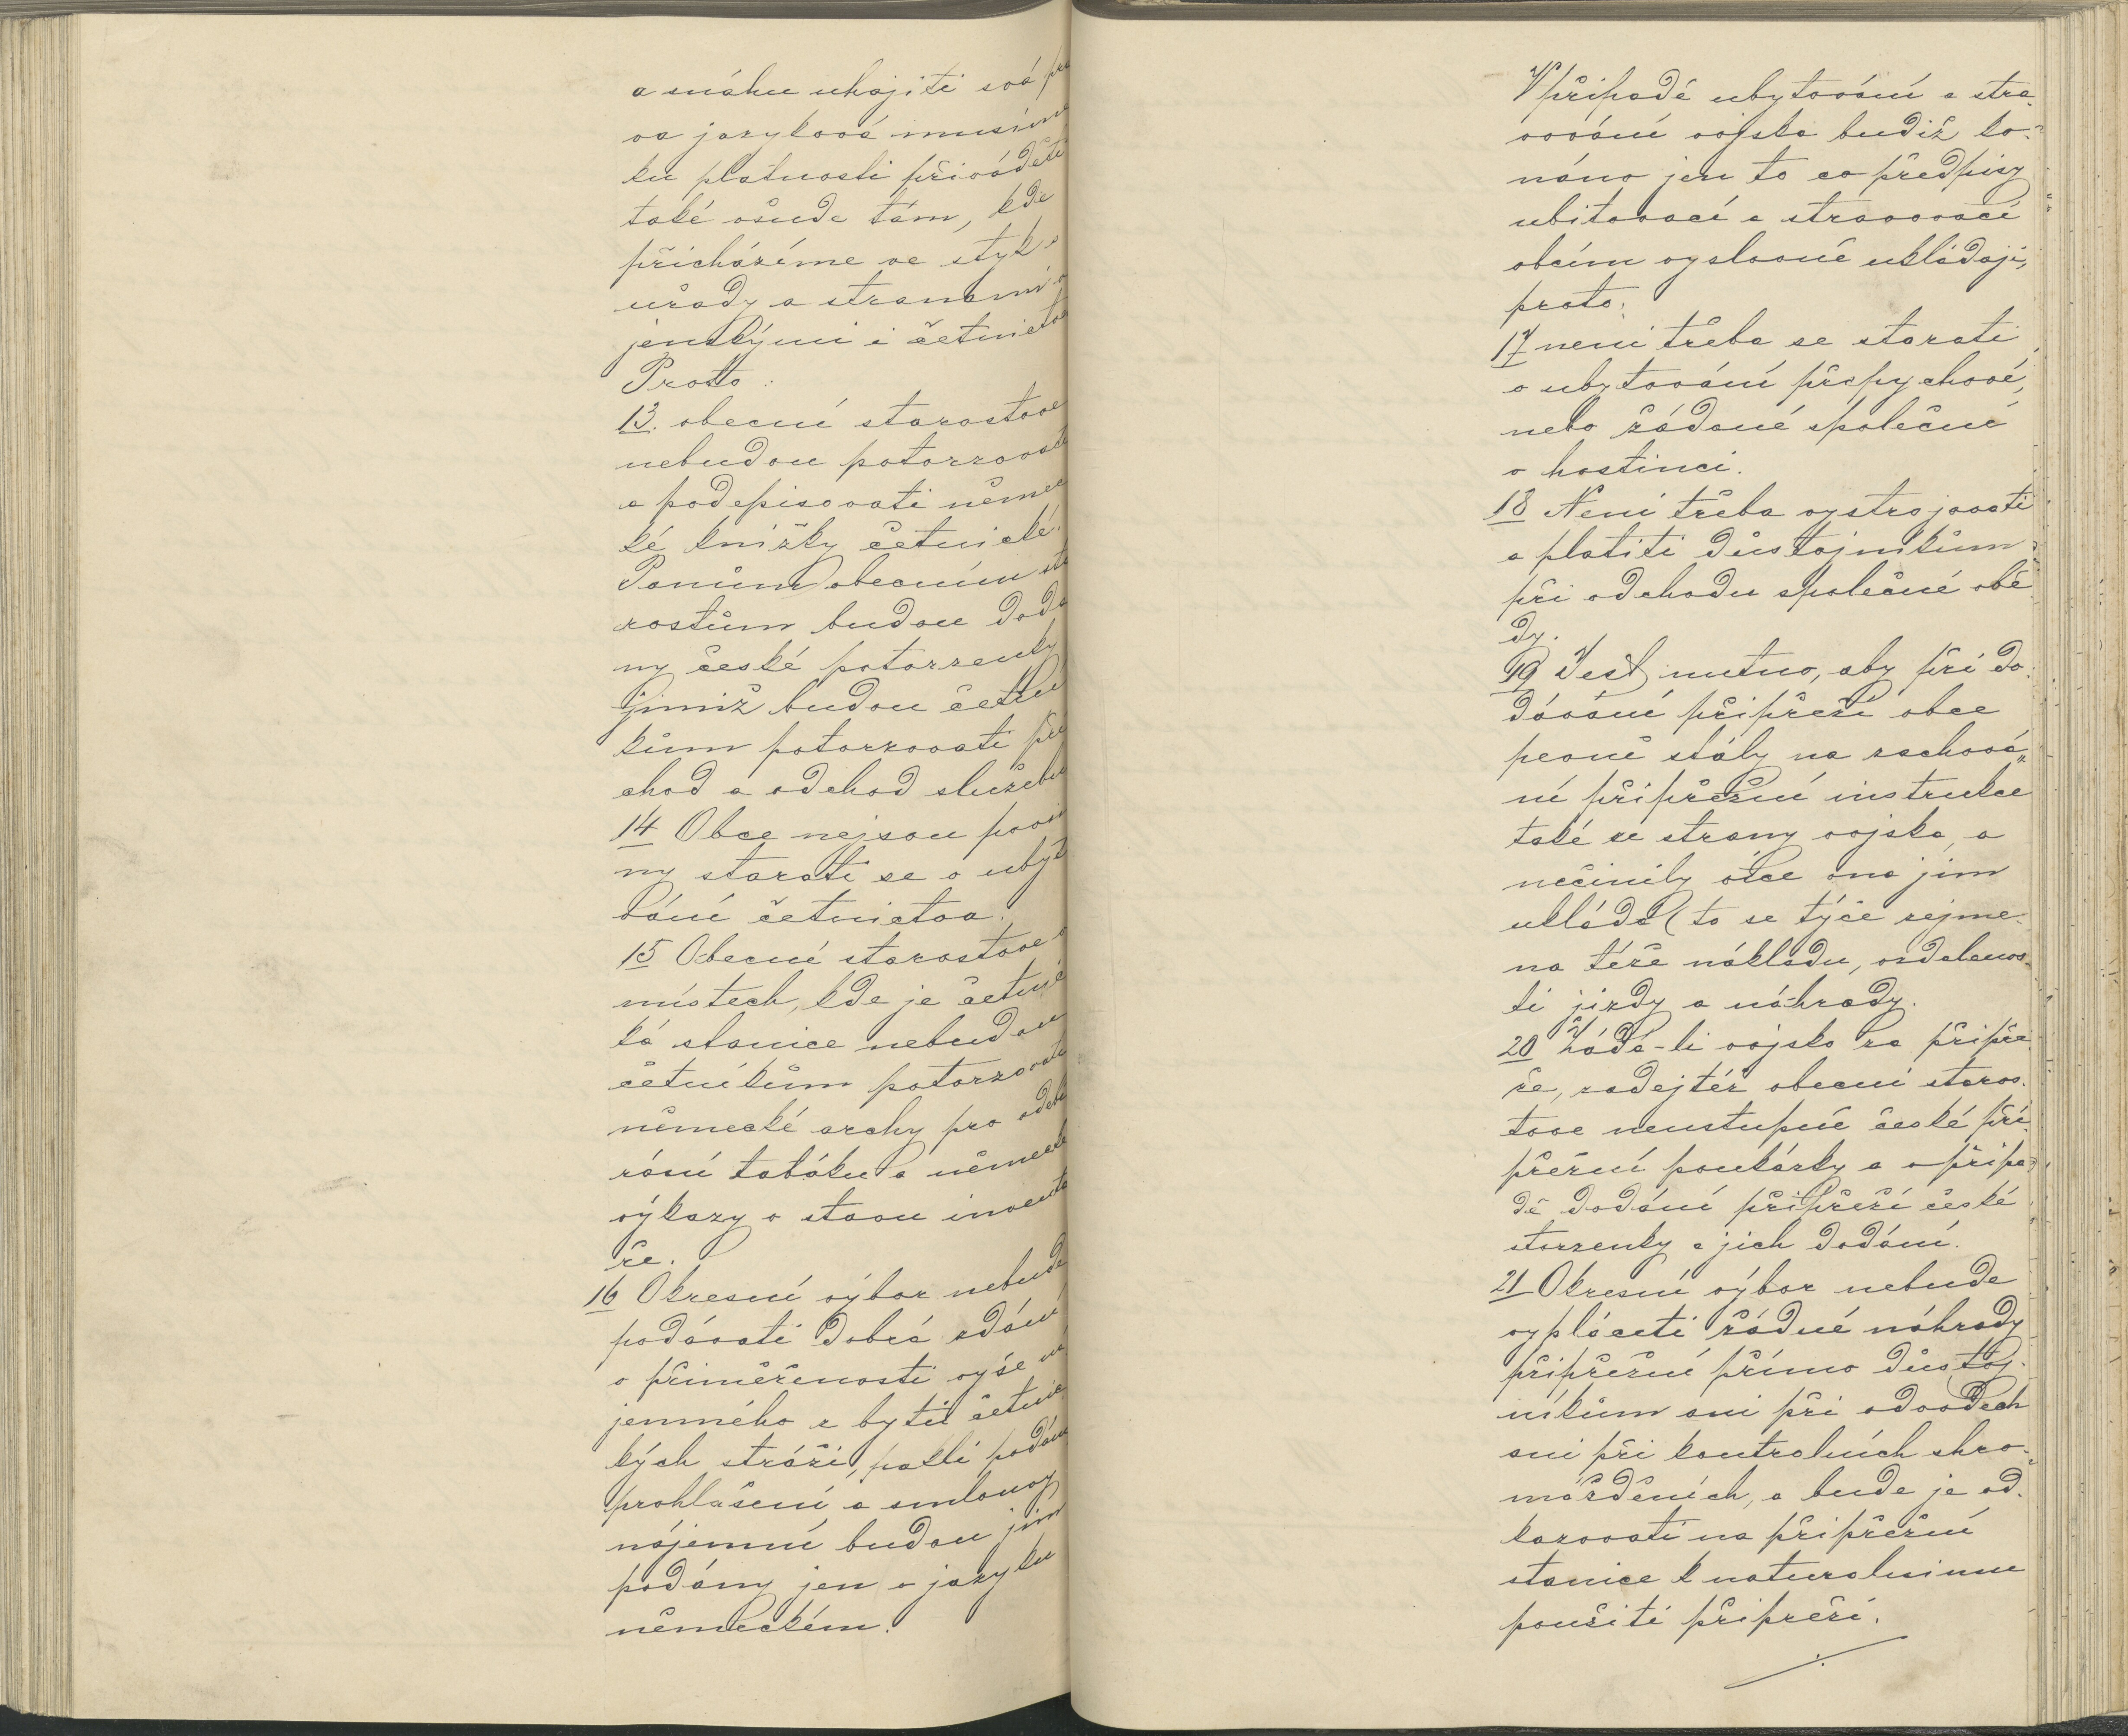 a snáhu uhajiti svá prá
va jazyková musíme
ku platnosti přiváděti
také všude tam, kde
přicházíme ve styk s
uřady a stranami vo
jenskými i četnictva
Proto:
13. obecní starostove
nebudou potvrzovati
a podepisovati němec
ké knižky četnické.
Panům obecním sta
rostům budou dodá
ny české potvrzenky
jimiž budou četní
kům potvrzovati pří
chod a odchod služebn
14 Obce nejsou povin
ny starati se o ubyt
ování četnictva.
15 Obecní starostove v
místech, kde je četnic
ká stanice nebudou
četníkům potvrzovati
německé archy pro odebí
rání tabáku a německé
výkazy o stavu inventá
ře.
16 Okresní výbor nebude
podávati dobrá zdání
o přiměřenosti výše ná
jemného z bytů četnic
kých stráží, pakli podání
prohlášení a smlouvy
nájemní budou jim
podány jen v jazyku
německém.
V případě ubytování a stra
vování vojska budiž ko-
náno jen to co předpisy
ubitovací a stravovací
obcím vyslovně ukládají,
proto:
17 neni třeba se starati
o ubytování přepychové,
nebo žádané společné
v hostinci.
18 Není třeba vystrojovati
a platiti důstojníkům
při odchodu společné obě
dy.
19 Jest nutno, aby při do
dávání přípřeží obce
pevně stály na zachová„
ní přípřežní instrukce
také se strany vojska, a
nečinily více ona jim
ukládá (to se týče zejme-
na tíže nákladu, vzdálenos-
ti jizdy a náhrady.
20 Žádá-li vojsko za přípře
že, zadejtéž obecní staros-
tove neustupně české pří
přežní poukázky a v přípa-
dě dodání přípřeží české
stvrzenky o jich dodání.
21 Okresní výbor nebude
vypláceti žádné náhrady
přípřežní přímo důstoj-
níkům ani při odvodech
ani při kontrolních shro-
mážděních, a bude je od-
kazovati na přípřežní
stanice k naturalnimu
použiti přípřeží.